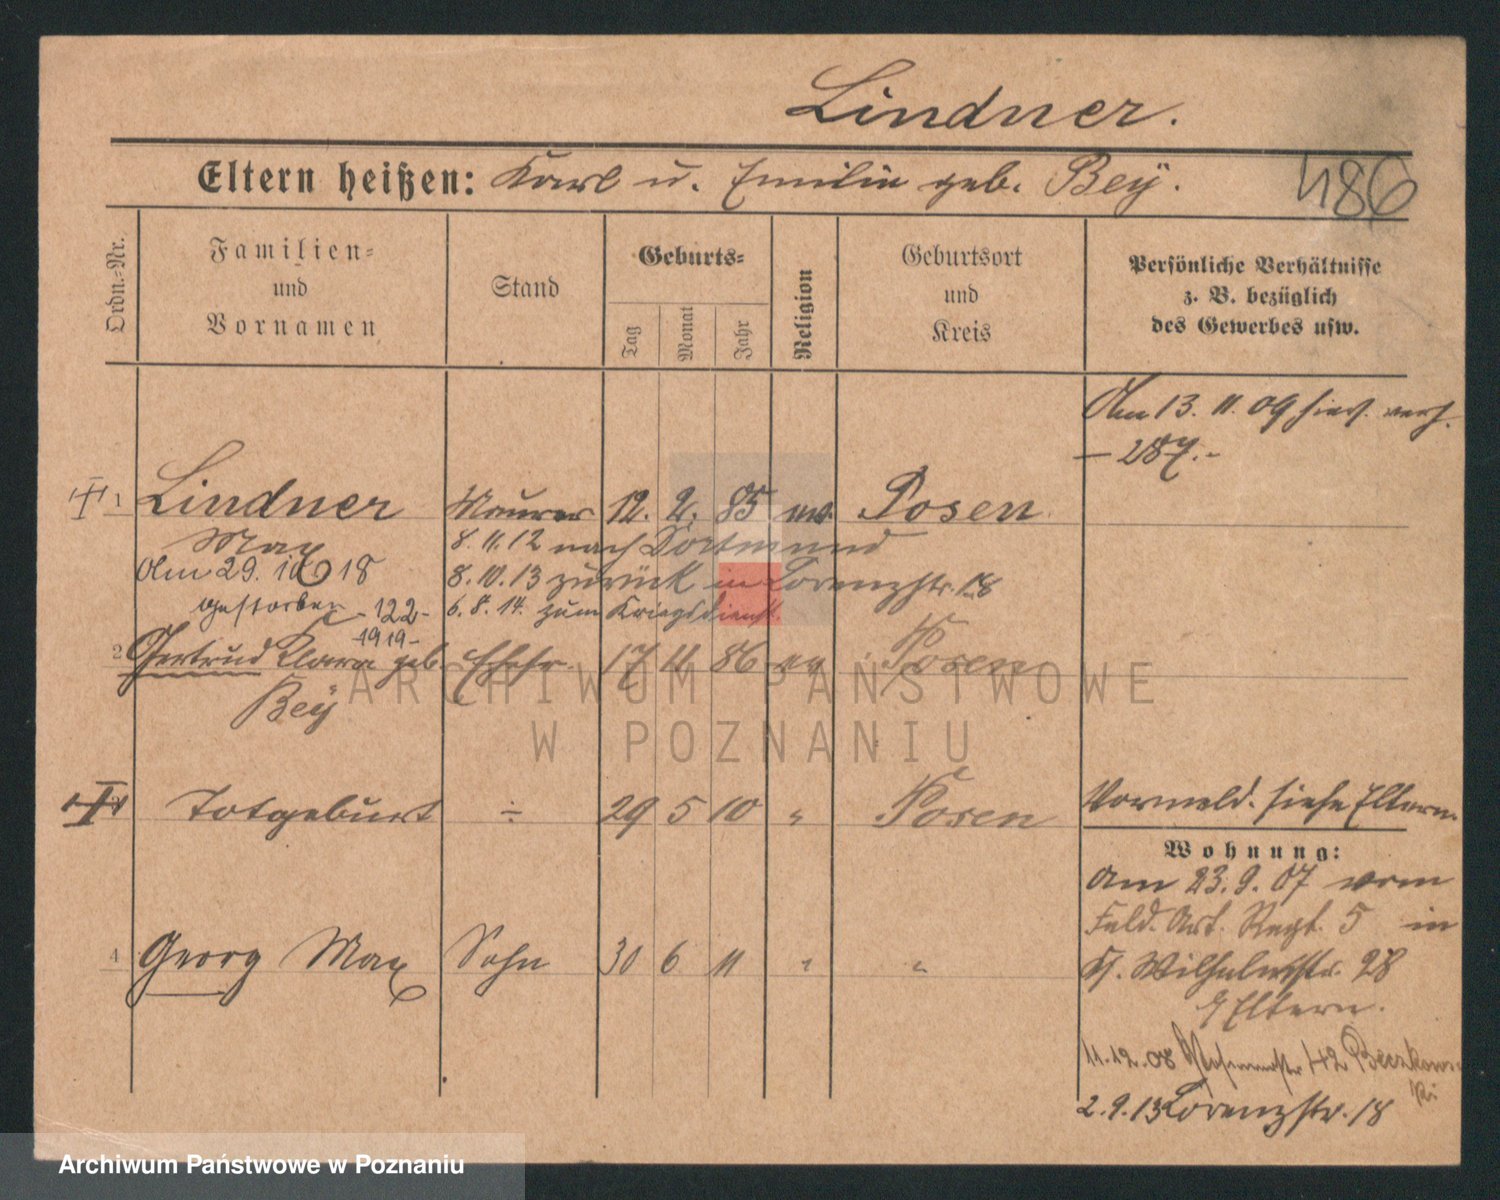 Lindner.
Eltern heißen: Karl u. Emilie geb. Bey.
486
Ordn.-Nr.
Familien- und Vornamen
Stand
Geburts-
Tag
Monat
Jahr
Religion
Geburtsort und Kreis
Persönliche Verhältnisse
z. B. bezüglich
des Gewerbes usw.
Am 13. 11. 09 hies. verh.
- 287.-
1 Lindner Maurer 12. 2. 85 ev. Posen
Max
8. 11. 12 nach Dortmund
Am 29. 10 18
8. 10. 13 zurück in Lorenzstr. 18
gestorben - 122-
6. 8. 14. zum Kriegsdienst.
-1919-
2 Gertrud Klara geb. Ehefr. 17 11 86 ev Posen
Bey
Totgeburt ÷ 29 5 10 " Posen
Vormeld. siehe Eltern.
Wohnung:
Am 23. 9. 07 vom
Feld. Art. Regt. 5 in
Kl. Wilhelmstr. 28
Eltern.
4 Georg Max Sohn 30 6 11 " "
11. 12. 08 42
2. 9. 13 Lorenzstr. 18
ARCHIWUM PAŃSTWOWE
W POZNANIU
Archiwum Państwowe w Poznaniu